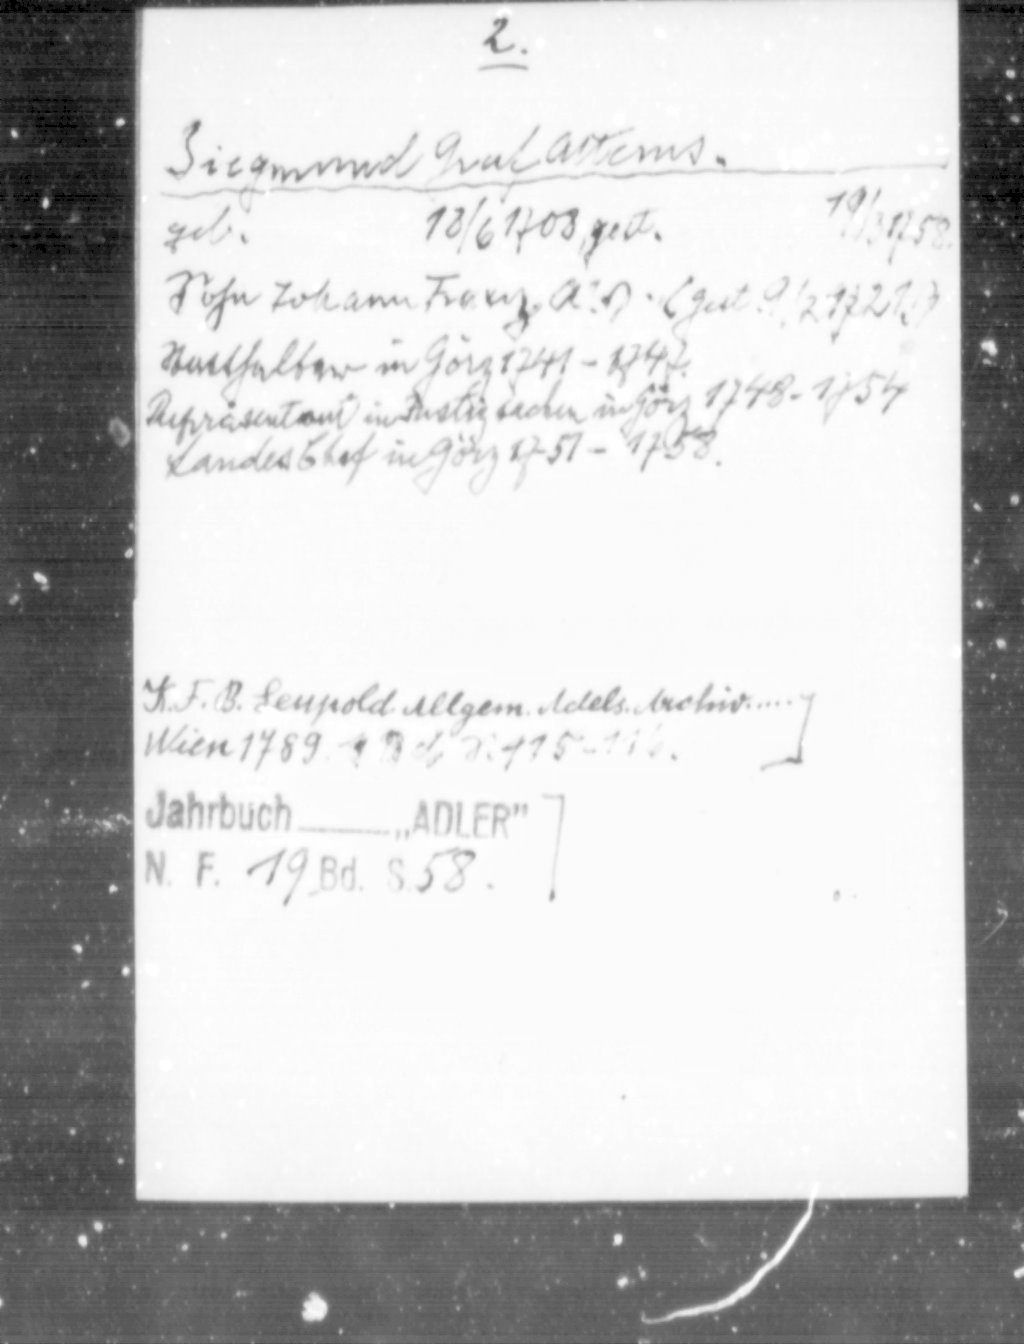 2.
Siegmund Graf Attems.
geb. 18/6 1708, gest. 19/3 1758.
Sohn Johann Franz A. (gest. 9/2 1721.)
Statthalter in Görz 1741 - 1747.
Repräsentant in Justizsachen in Görz 1748 - 1754
Landes Chef in Görz 1751 - 1758.
K. F. B. Leupold. Allgem. Adels. Archiv.....
Wien 1789. 1 Bd. S. 115-116.
Jahrbuch „ADLER”
N. F. 19 Bd. S. 58.